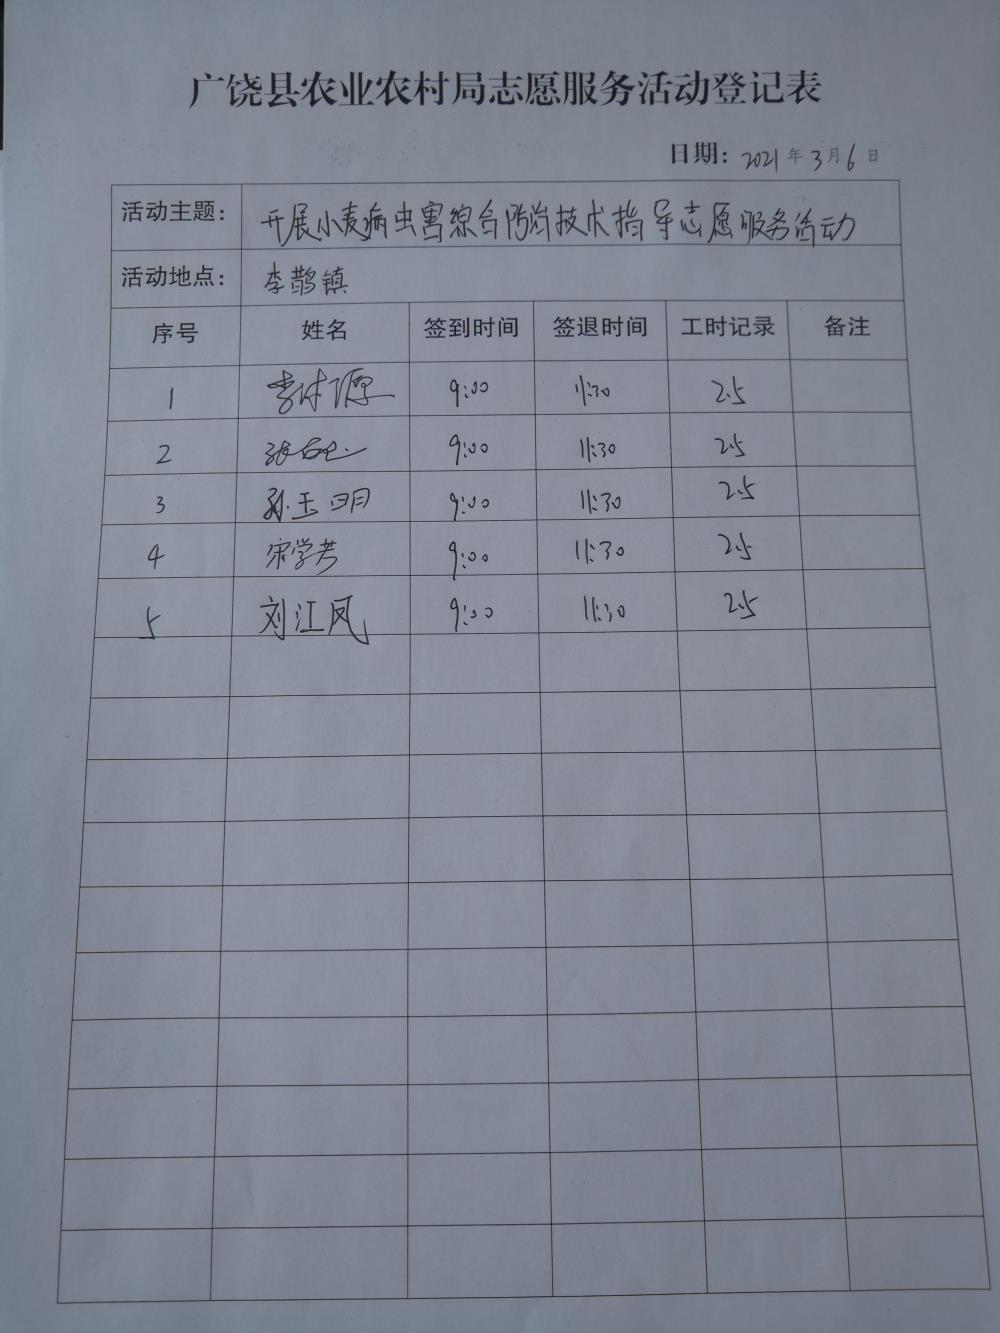 广饶县农业农村局志愿服务活动登记表
日期: 2021年3月6日
活动主题: 开展小麦病虫害综合防治技术指导志愿服务活动
活动地点: 李鹊镇
序号 姓名 签到时间 签退时间 工时记录 备注
1 9:00 11:30 2.5
2 9:00 11:30 2.5
3 孙玉明 9:00 11:30 2.5
4 宋学芳 9:00 11:30 2.5
5 刘江凤 9:00 11:30 2.5